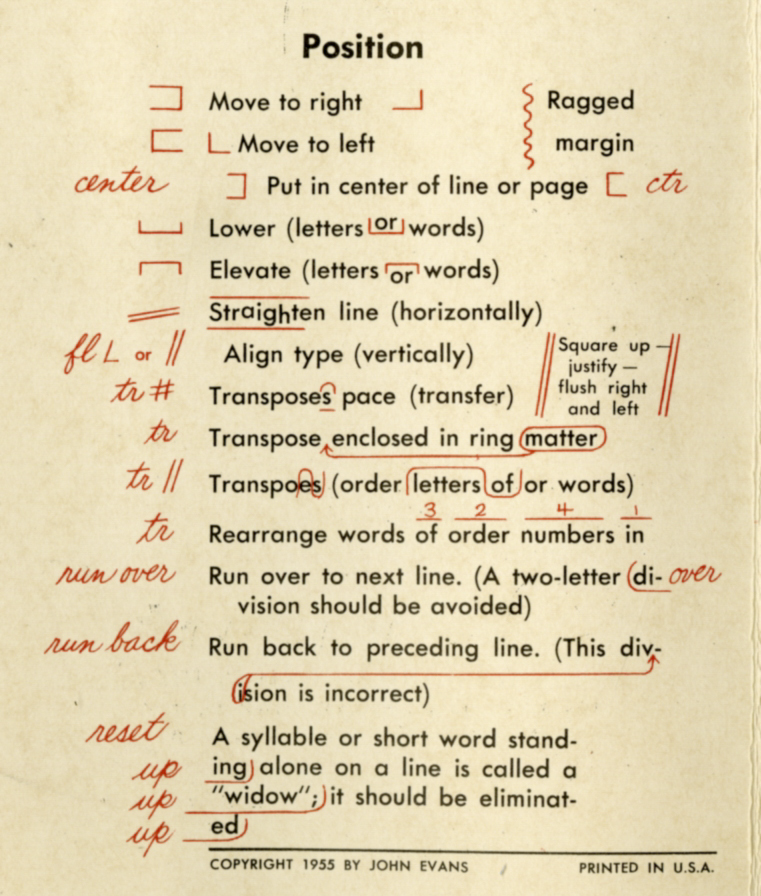 Position
Move to right
Ragged
Move to left
margin
center Put in center of line or page ctr
Lower (letters or words)
Elevate (letters or words)
Straighten line (horizontally)
fl L or || Align type (vertically)
Square up —
justify —
flush right
and left
tr # Transposes pace (transfer)
tr Transpose enclosed in ring matter
tr || Transpoes (order letters of or words)
3 2 4 1
tr Rearrange words of order numbers in
run over Run over to next line. (A two-letter di- over
vision should be avoided)
run back Run back to preceding line. (This div-
ision is incorrect)
reset A syllable or short word stand-
up ing alone on a line is called a
up "widow"; it should be eliminat-
up ed
COPYRIGHT 1955 BY JOHN EVANS PRINTED IN U.S.A.